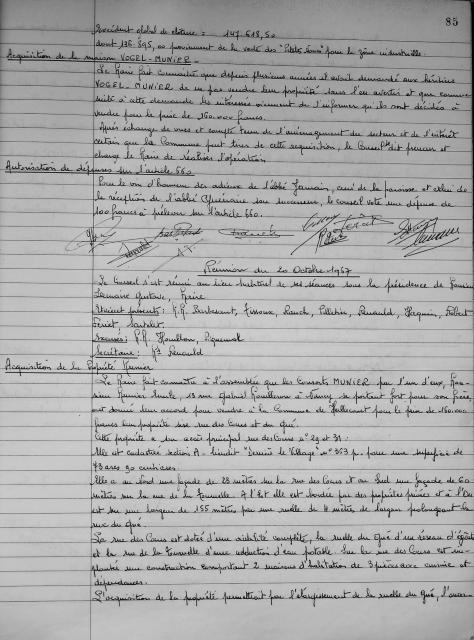 85
Excédent global de clôture = 147.618,50
dont 136.895,00 proviennent de la vente des "Petits Sous" pour la zône industrielle.
Acquisition de la maison VOGEL-MUNIER -
Le Maire fait connaître que depuis plusieurs années il avait demandé aux héritiers
VOGEL-MUNIER de ne pas vendre leur propriété sans l'en avertir et que comme
suite à cette demande les intéressés viennent de l'informer qu'ils sont décidés à
vendre pour le prix de 160.000 francs.
Après échange de vues et compte tenu de l'aménagement du secteur et de l'intérêt
certain que la Commune peut tirer de cette acquisition, le Conseil dit preneur et
charge le Maire de réaliser l'opération
Autorisation de dépenses sur l'article 660
Pour le vin d'honneur des adieux de l'abbé curé de la paroisse et celui de
la réception de l'abbé son successeur, le conseil vote une dépense de
100 francs à prélever sur l'article 660.
Réunion du 20 Octobre 1967
Le Conseil s'est réuni au lieu habituel de ses séances sous la présidence de Monsieur
Lemaire Gustave, Maire
Etaient présents : M.M. Rauch, Pelletier, Renauld, Robert
Excusés : M.M. Houillon,
Secrétaire : Mr Renauld
Acquisition de la Propriété Munier
Le Maire fait connaître à l'assemblée que les Consorts MUNIER par l'un d'eux, Mon-
sieur Munier Emile, 13 rue Gabriel à Nancy se portant fort pour son frère,
ont donné leur accord pour vendre à la Commune de pour le prix de 160.000
francs leur propriété sise rue des Cours et du Gué.
Cette propriété a son accès principal rue des Cours n° 29 et 31 :
Elle est cadastrée section A - lieudit "Derrière le Village" n° 363 p. pour une superficie de
73 ares 90 centiares.
Elle a au Nord une façade de 23 mètres sur la rue des Cours et au Sud une façade de 60
mètres sur la rue de la Tournelle. A l'Est elle est bordée par des propriétés privées et à l'Ou-
est sur une longueur de 155 mètres par une ruelle de 4 mètres de largeur prolongeant la
rue du Gué.
La rue des Cours est dotée d'une viabilité complète, la ruelle du Gué d'un réseau d'égouts
et la rue de la Tournelle d'une adduction d'eau potable. Sur la rue des Cours est im-
plantée une construction comportant 2 maisons d'habitation de 3 pièces avec cuisine et
dépendances.
L'acquisition de la propriété permettrait par l'élargissement de la ruelle du Gué, l'ouver-